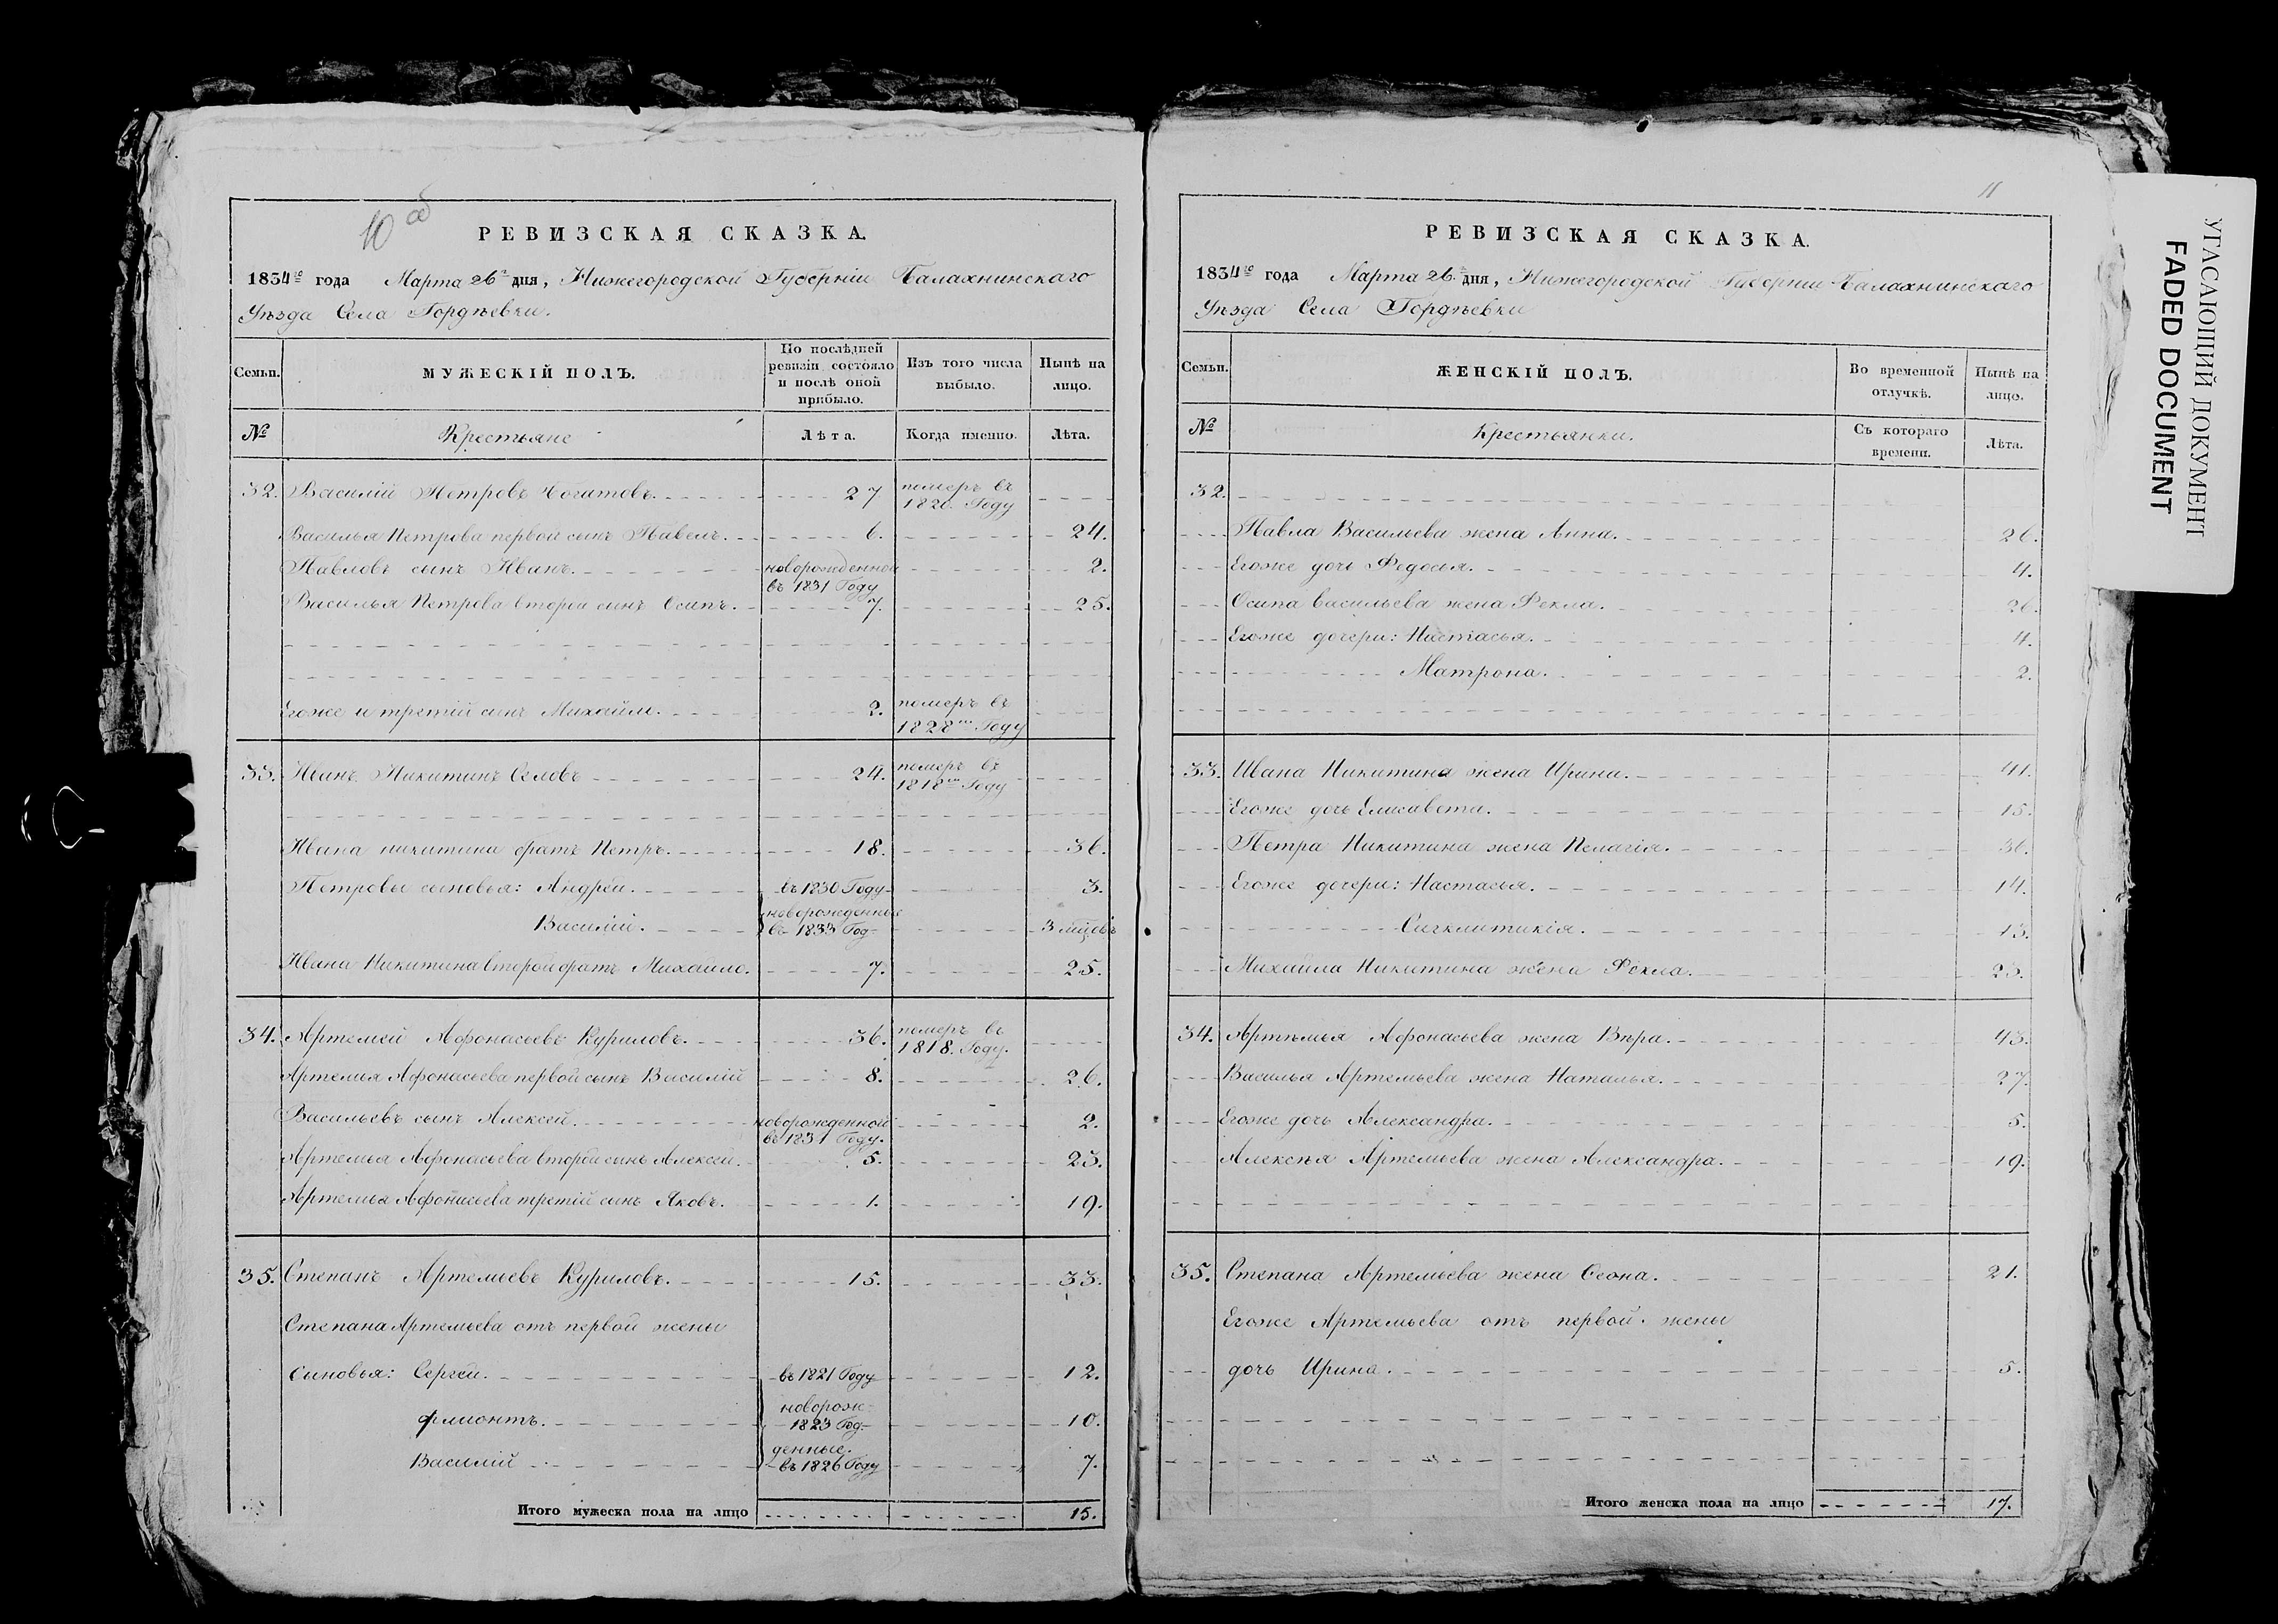 10 об
РЕВИЗСКАЯ СКАЗКА.
1834го года Марта 26го дня, Нижегородской Губерніи Балахнинскаго
Уѣзда Села Гордѣевки.
Семьи. МУЖЕСКІЙ ПОЛЪ. По послѣдней ревизіи состояло и послѣ оной прибыло. Изъ того числа выбыло. Нынѣ на лицо.
№ Крестьяне Лѣта. Когда именно. Лѣта.
32. Василій Петровъ 27 померъ въ 1820. Году
Василья Петрова первой сынъ Павелъ. 6. 24.
Павловъ сынъ Иванъ. новорожденной въ 1831 Году 2.
Василья Петрова второй сынъ Осипъ. 7. 25.
Егоже и третій сынъ Михайла. 2. померъ въ 1828м Году
33. Иванъ Никитинъ 24. померъ въ 1818м Году
Ивана никитина братъ Петръ. 18. 36.
Петровы сыновья: Андрей. въ 1830 Году 3.
Василій. новорожденные въ 1833 Год 3 мѣс
Ивана Никитина второй братъ Михаило. 7. 25.
34. Артемей Афонасьевъ Куриловъ. 36. померъ въ 1818. Году.
Артемья Афонасьева первой сынъ Василій 8. 26.
Васильевъ сынъ Алексей. новорожденной въ 1831 Году. 2.
Артемья Афонасьева второй сынъ Алексей. 5. 23.
Артемья Афонасьева третій сынъ Яковъ. 1. 19.
35. Степанъ Артемьевъ Куриловъ. 15. 33.
Степана Артемьева отъ первой жены
сыновья: Сергей. въ 1821 Году 12.
новорож-
филионтъ. 1823 Год 10.
денные.
Василій въ 1826 Году 7.
Итого мужеска пола на лицо 15.
11
РЕВИЗСКАЯ СКАЗКА.
1834го года Марта 26. дня, Нижегородской Губерніи Балахнинскаго
Уѣзда Села Гордѣевки
Семьи. ЖЕНСКІЙ ПОЛЪ. Во временной отлучкѣ. Нынѣ на лицо.
№ Крестьянки. Съ котораго времени. Лѣта.
32.
Павла Васильева жена Анна. 26.
Егоже дочь Федосья. 4.
Осипа васильева жена Фекла. 26.
Егоже дочери: Настасья. 4.
Матрона. 2.
33. Ивана Никитина жена Ирина. 41.
Егоже дочь Елисавета. 15.
Петра Никитина жена Пелагія. 36.
Егоже дочери: Настасья. 14.
Сигклитикія. 13.
Михайла Никитина жена Фекла. 23.
34. Артѣмья Афонасьева жена Вѣра. 43.
Василья Артемьева жена Наталья. 27.
Егоже дочь Александра. 5.
Алексѣя Артемьева жена Александра. 19.
35. Степана Артемьева жена 21.
Егоже Артемьева отъ первой жены
дочь Ирина. 5.
Итого женска пола на лицо 17.
УГАСАЮЩИЙ ДОКУМЕНТ
FADED DOCUMENT